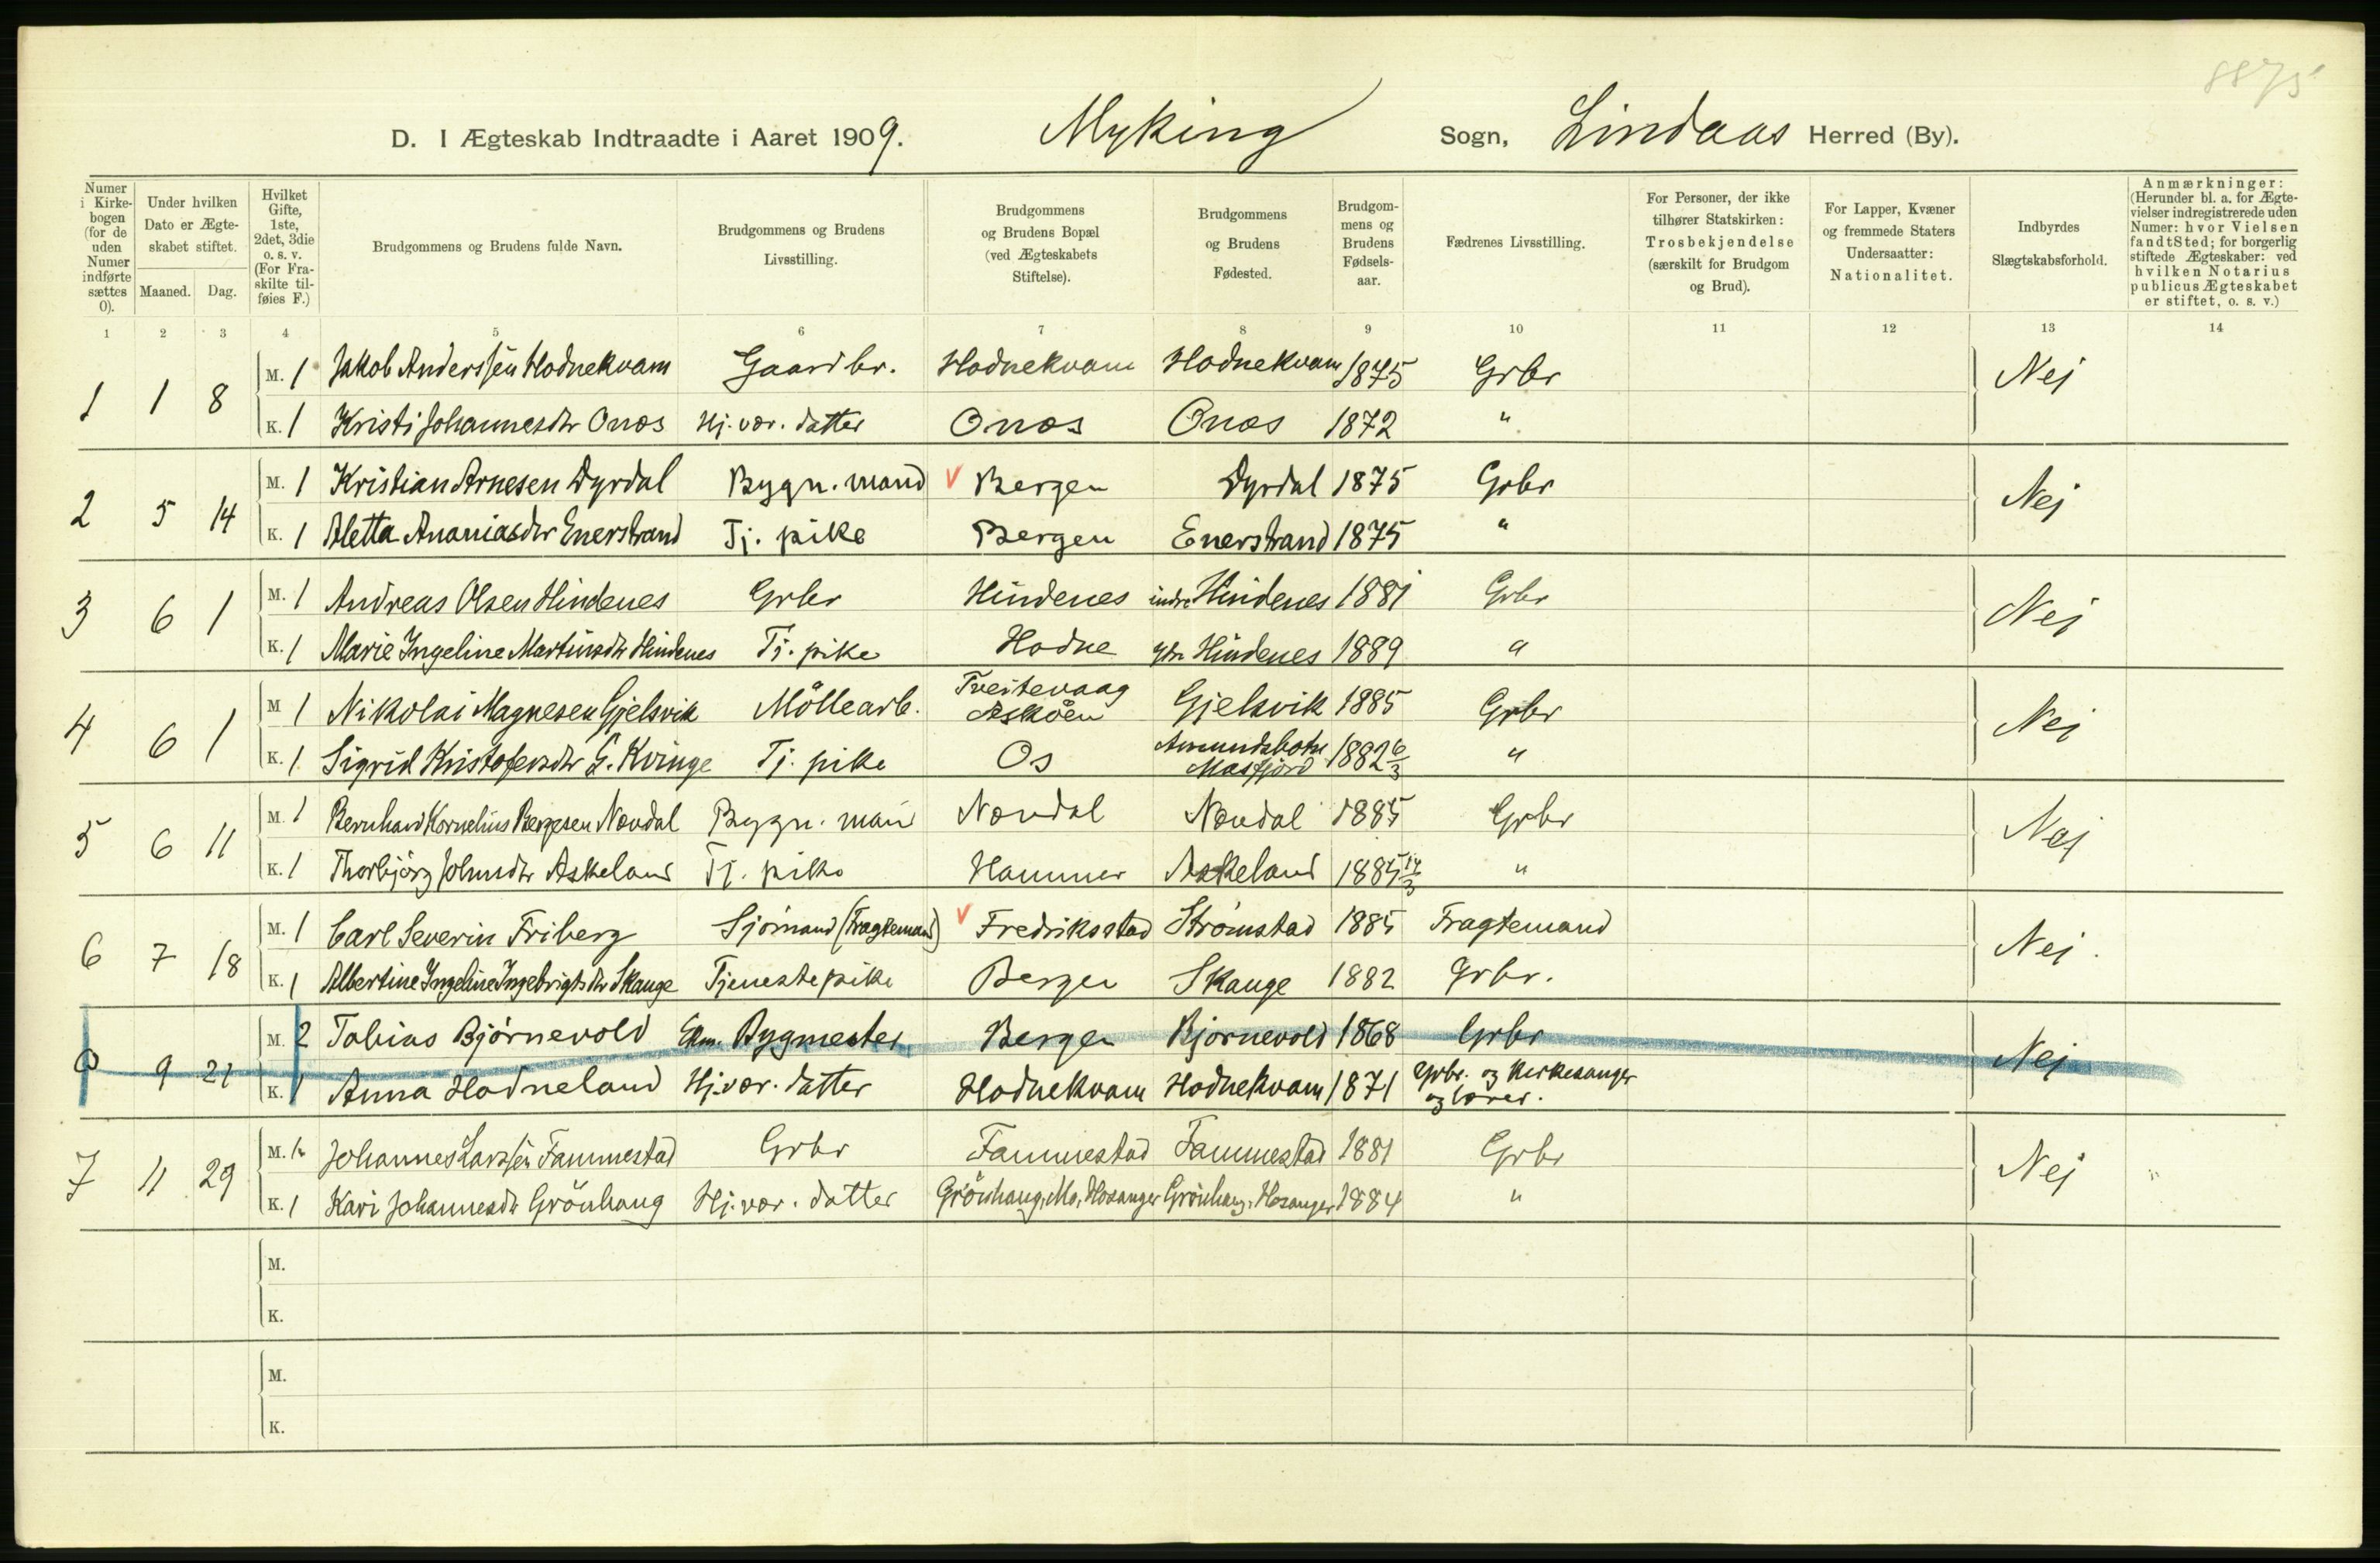 8875
D. I Ægteskab Indtraadte i Aaret 1909. Myking Sogn, Lindaas Herred (By).
Numer i Kirkebogen (for de uden Numer indførte sættes 0).
Under hvilken Dato er Ægteskabet stiftet.
Maaned. Dag.
Hvilket Gifte, 1ste, 2det, 3die o. s. v. (For Fraskilte tilføies F.)
Brudgommens og Brudens fulde Navn.
Brudgommens og Brudens Livsstilling.
Brudgommens og Brudens Bopæl (ved Ægteskabets Stiftelse).
Brudgommens og Brudens Fødested.
Brudgommens og Brudens Fødselsaar.
Fædrenes Livsstilling.
For Personer, der ikke tilhører Statskirken: Trosbekjendelse (særskilt for Brudgom og Brud).
For Lapper, Kvæner og fremmede Staters Undersaatter: Nationalitet.
Indbyrdes Slægtskabsforhold.
Anmærkninger: (Herunder bl. a. for Ægtevielser indregistrerede uden Numer: hvor Vielsen fandt Sted; for borgerlig stiftede Ægteskaber: ved hvilken Notarius publicus Ægteskabet er stiftet, o. s. v.)
1 2 3 4 5 6 7 8 9 10 11 12 13 14
1 1 8 M. 1 Jakob Anderssen Hodnekvam Gaardbr. Hodnekvam Hodnekvam 1875 Grbr Nej
K. 1 Kristi Johannesdtr Onæs Hj. vær. datter Onæs Onæs 1872 "
2 5 14 M. 1 Kristian Arnesen Dyrdal Bygn. mand V Bergen Dyrdal 1875 Grbr Nej
K. 1 Aletta Ananiasdtr Enerstrand Tj. pike Bergen Enerstrand 1875 "
3 6 1 M. 1 Andreas Olsen Hindenes Grbr Hindenes indre Hindenes 1881 Grbr Nej
K. 1 Marie Ingeline Martinsdtr Hindenes Tj. pike Hodne ytre Hindenes 1889 "
4 6 1 M 1 Nikolai Magnesen Gjelsvik Möllearb. Tveitevaag Asköen Gjelsvik 1885 Grbr Nej
K. 1 Sigrid Kristofersdtr G. Kvinge Tj. pike Os Amundsbotn Masfjord 1882 6/3 "
5 6 11 M. 1 Bernhard Kornelius Bergesen Nævdal Bygn. man Nævdal Nævdal 1885 Grbr Nej
K. 1 Thorbjörg Johnsdtr Askeland Tj. pike Hammer Askeland 1885 14/3 "
6 7 18 M. 1 Carl Severin Friberg Sjömand (Fragtemand) V Fredriksstad Strømstad 1885 Fragtemand Nej.
K. 1 Albertine Ingeline Ingebrigtsdtr Skauge Tjenestepike Bergen Skauge 1882 Grbr.
0 9 21 M. 2 Tobias Bjørnevold Ekm. Bygmester Bergen Bjørnevold 1868 Grbr Nej
K. 1 Anna Hodneland Hj. vær. datter Hodnekvam Hodnekvam 1871 Grbr. og Kirkesanger og lærer.
7 11 29 M. 1 Johannes Larssen Fammestad Grbr Fammestad Fammestad 1881 Grbr Nej "
K. 1 Kari Johannesdtr Grönhaug Hj. vær. datter Grönhaug, Mo, Hosanger Grönhaug, Hosanger 1884 "
M.
K.
M.
K.